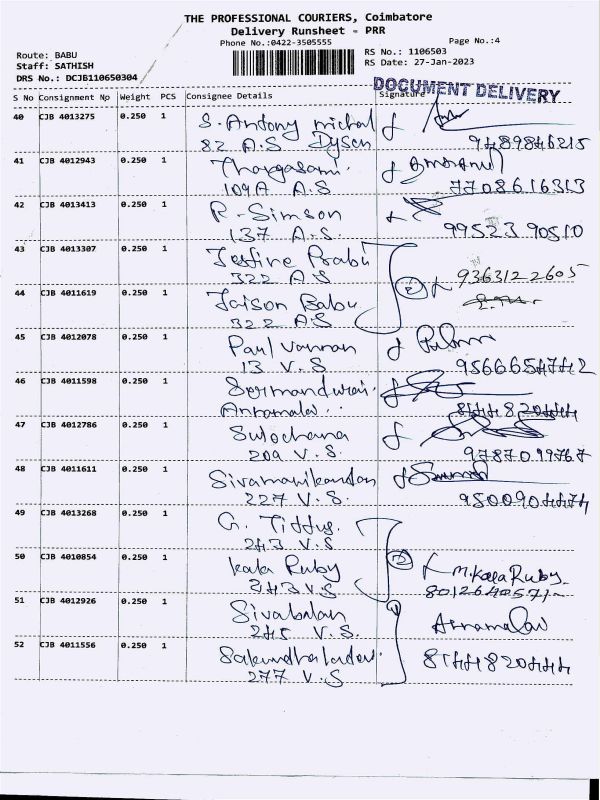 THE PROFESSIONAL COURIERS, Coimbatore
Delivery Runsheet - PRR
Phone No.:0422-3505555
Page No.:4
Route: BABU
Staff: SATHISH
DRS No.: DCJB110650304
RS No.: 1106503
RS Date: 27-Jan-2023
DOCUMENT DELIVERY
S No Consignment No Weight PCS Consignee Details Signature
40 CJB 4013275 0.250 1 S. Antony michal
82 A.S Dyson 9489846215
41 CJB 4012943 0.250 1 Thangasami.
109A A.S 7708616313
42 CJB 4013413 0.250 1 R-Simson
137 A.S. 99523 90510
43 CJB 4013307 0.250 1 Jesfine Prabu
322 A.S 9363122605
44 CJB 4011619 0.250 1 Jaison Babu
322 A.S
45 CJB 4012078 0.250 1 Paul Vannan
13 V.S.
46 CJB 4011598 0.250 1
8444820444
47 CJB 4012786 0.250 1 Sulochana
209 V.S. 9787099767
48 CJB 4011611 0.250 1 Sivamanikandan
227 V.S. 9500904474
49 CJB 4013268 0.250 1 G. Tittus.
243 V.S
50 CJB 4010854 0.250 1 kala Ruby M.Kala Ruby
243 V.S 8012640571
51 CJB 4012926 0.250 1 Sivabalan
245 V.S.
52 CJB 4011556 0.250 1
277 V.S 8144820444